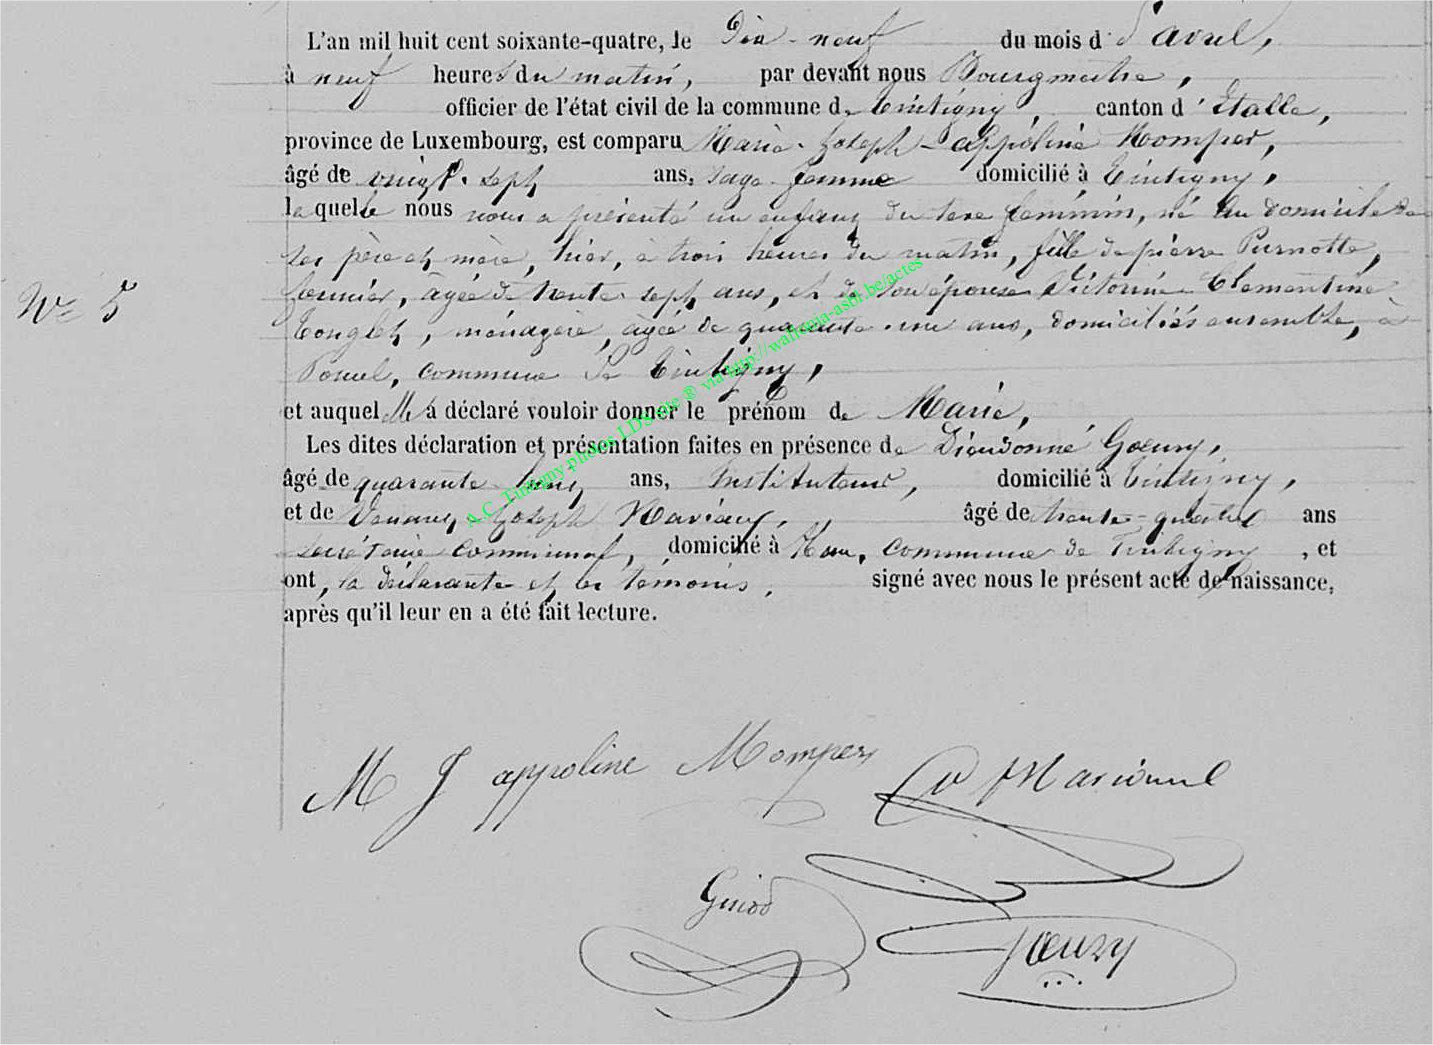 L'an mil huit cent soixante-quatre, le Dix-neuf du mois d'avril,
à neuf heures du matin, par devant nous Bourgmestre,
officier de l'état civil de la commune de Tintigny, canton d'Etalle,
province de Luxembourg, est comparu Marie-Joseph-appoline Momper,
âgé de vingt-sept ans, sage-femme domicilié à Tintigny,
laquelle nous nous a présenté un enfant du sexe féminin, né au domicile de
ses père et mère, hier, à trois heures du matin, fille de pierre Purnotte,
N° 5
âgée de trente-sept ans, et de son épouse Victorine Clémentine
Tonglet, ménagère, agée de quarante-une ans, domiciliés ensemble, à
commune de Tintigny,
et auquel elle a déclaré vouloir donner le prénom de Marie,
Les dites déclaration et présentation faites en présence de Dieudonné Goeury,
âgé de quarante ans, Instituteur, domicilié à Tintigny,
et de Joseph âgé de trente-quatre ans
secrétaire communal, domicilié à Han, commune de Tintigny, et
ont, la déclarante et les témoins, signé avec nous le présent acte de naissance,
après qu'il leur en a été fait lecture.
A.C. Tintigny photos LDS site ® via http://wallonia-asbl.be/actes
M J appoline Momper
Goeury